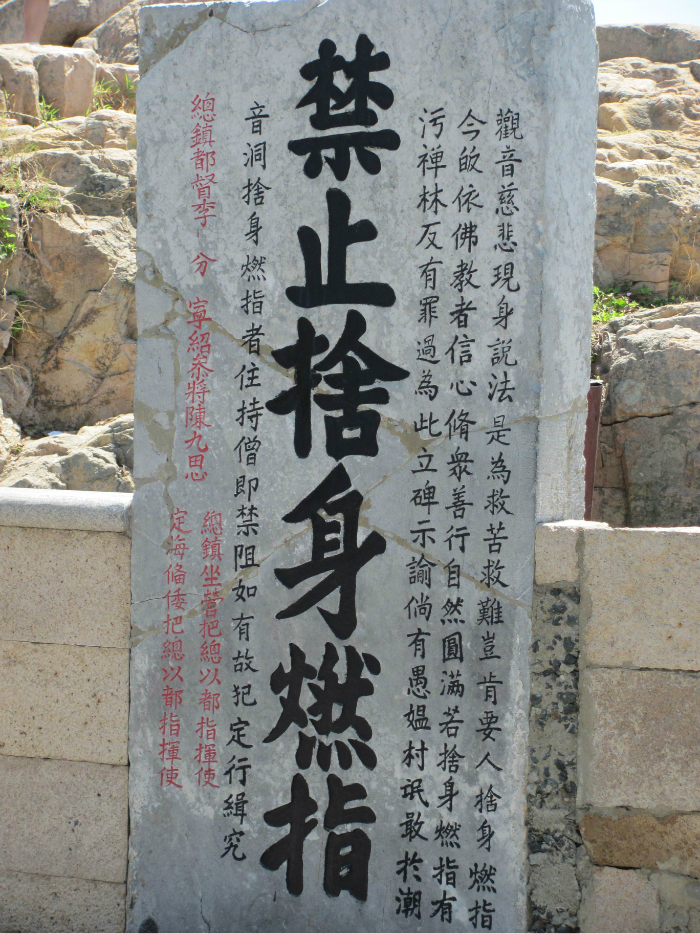 觀音慈悲現身說法是為救苦救難豈肯要人捨身燃指
今皈依佛教者信心脩眾善行自然圓滿若捨身燃指有
污禪林反有罪過為此立碑示諭倘有愚媼村氓敢於潮
禁止捨身燃指
音洞捨身燃指者住持僧即禁阻如有故犯定行緝究
總鎮都督李 分 寧紹叅將陳九思
總鎮坐營把總以都指揮使
定海俻倭把總以都指揮使